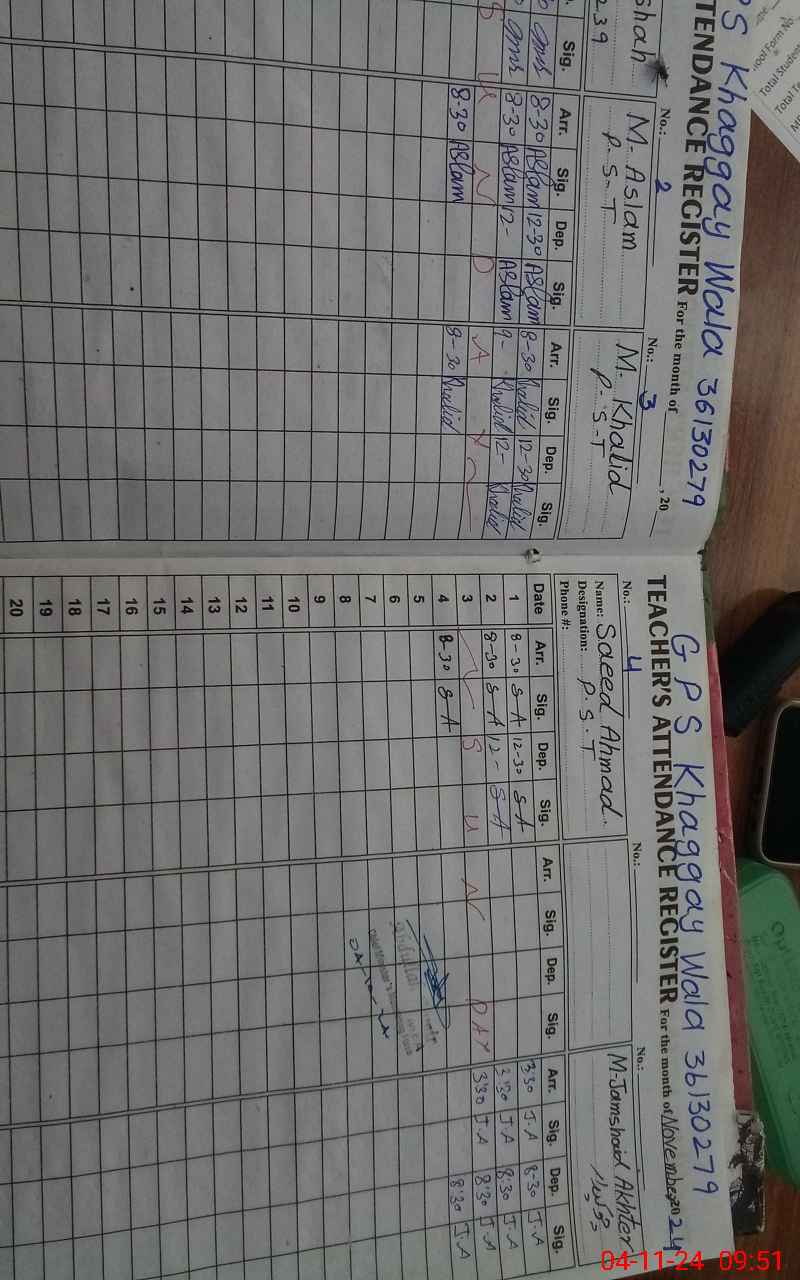 PS Khaggay Wala 36130279
TENDANCE REGISTER For the month of , 20
shah
239
No.: 2
M. Aslam
P.S.T
No.: 3
M. Khalid
P.S.T
Sig. Arr. Sig. Dep. Sig. Arr. Sig. Dep. Sig.
8-30 Aslam 12-30 Aslam 8-30 Khalid 12-30 Khalid
8-30 Aslam 12- Aslam 9- Khalid 12- Khalid
S U N D A Y
8-30 Aslam 8-30 Khalid
G P S Khaggay Wala 36130279
TEACHER'S ATTENDANCE REGISTER For the month of November 2024
No.: 4
Name: Saeed Ahmad.
Designation: P.S.T
Phone #:
No.:
No.:
M-Jamshaid Akhter
Date Arr. Sig. Dep. Sig. Arr. Sig. Dep. Sig. Arr. Sig. Dep. Sig.
1 8-30 S-A 12-30 S-A 3:30 J.A 8-30 J.A
2 8-30 S-A 12- S-A 3:30 J.A 8:30 J.A
3 S U N DAY 3:30 J.A 8:30 J.A
4 8-30 S-A 8:30 J.A
5
6
7
8
9
10
11
12
13
14
15
16
17
18
19
20
Total Stude
04-11-24 09:51